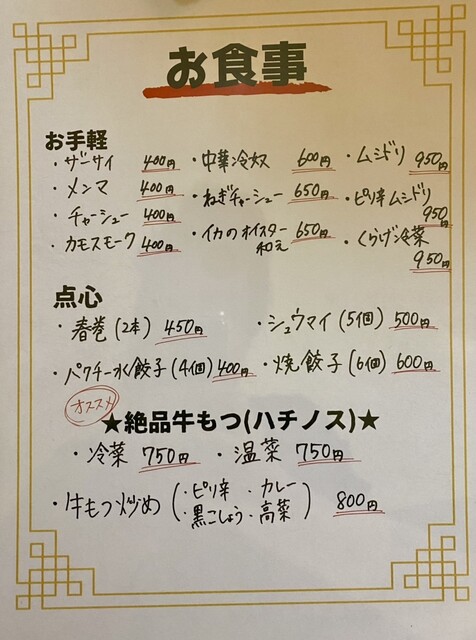 お食事
お手軽
・ザーサイ 400円 ・中華冷奴 600円 ・ムシドリ 950円
・メンマ 400円 ・ねぎチャーシュー 650円 ・ピリ辛ムシドリ 950円
・チャーシュー 400円 ・イカのオイスター和え 650円 ・くらげ冷菜 950円
・カモスモーク 400円
点心
・春巻(2本) 450円 ・シュウマイ(5個) 500円
・パクチー水餃子(4個) 400円 ・焼餃子(6個) 600円
オススメ
★絶品牛もつ(ハチノス)★
・冷菜 750円 ・温菜 750円
・牛もつ炒め(・ピリ辛 ・カレー ・黒こしょう ・高菜) 800円